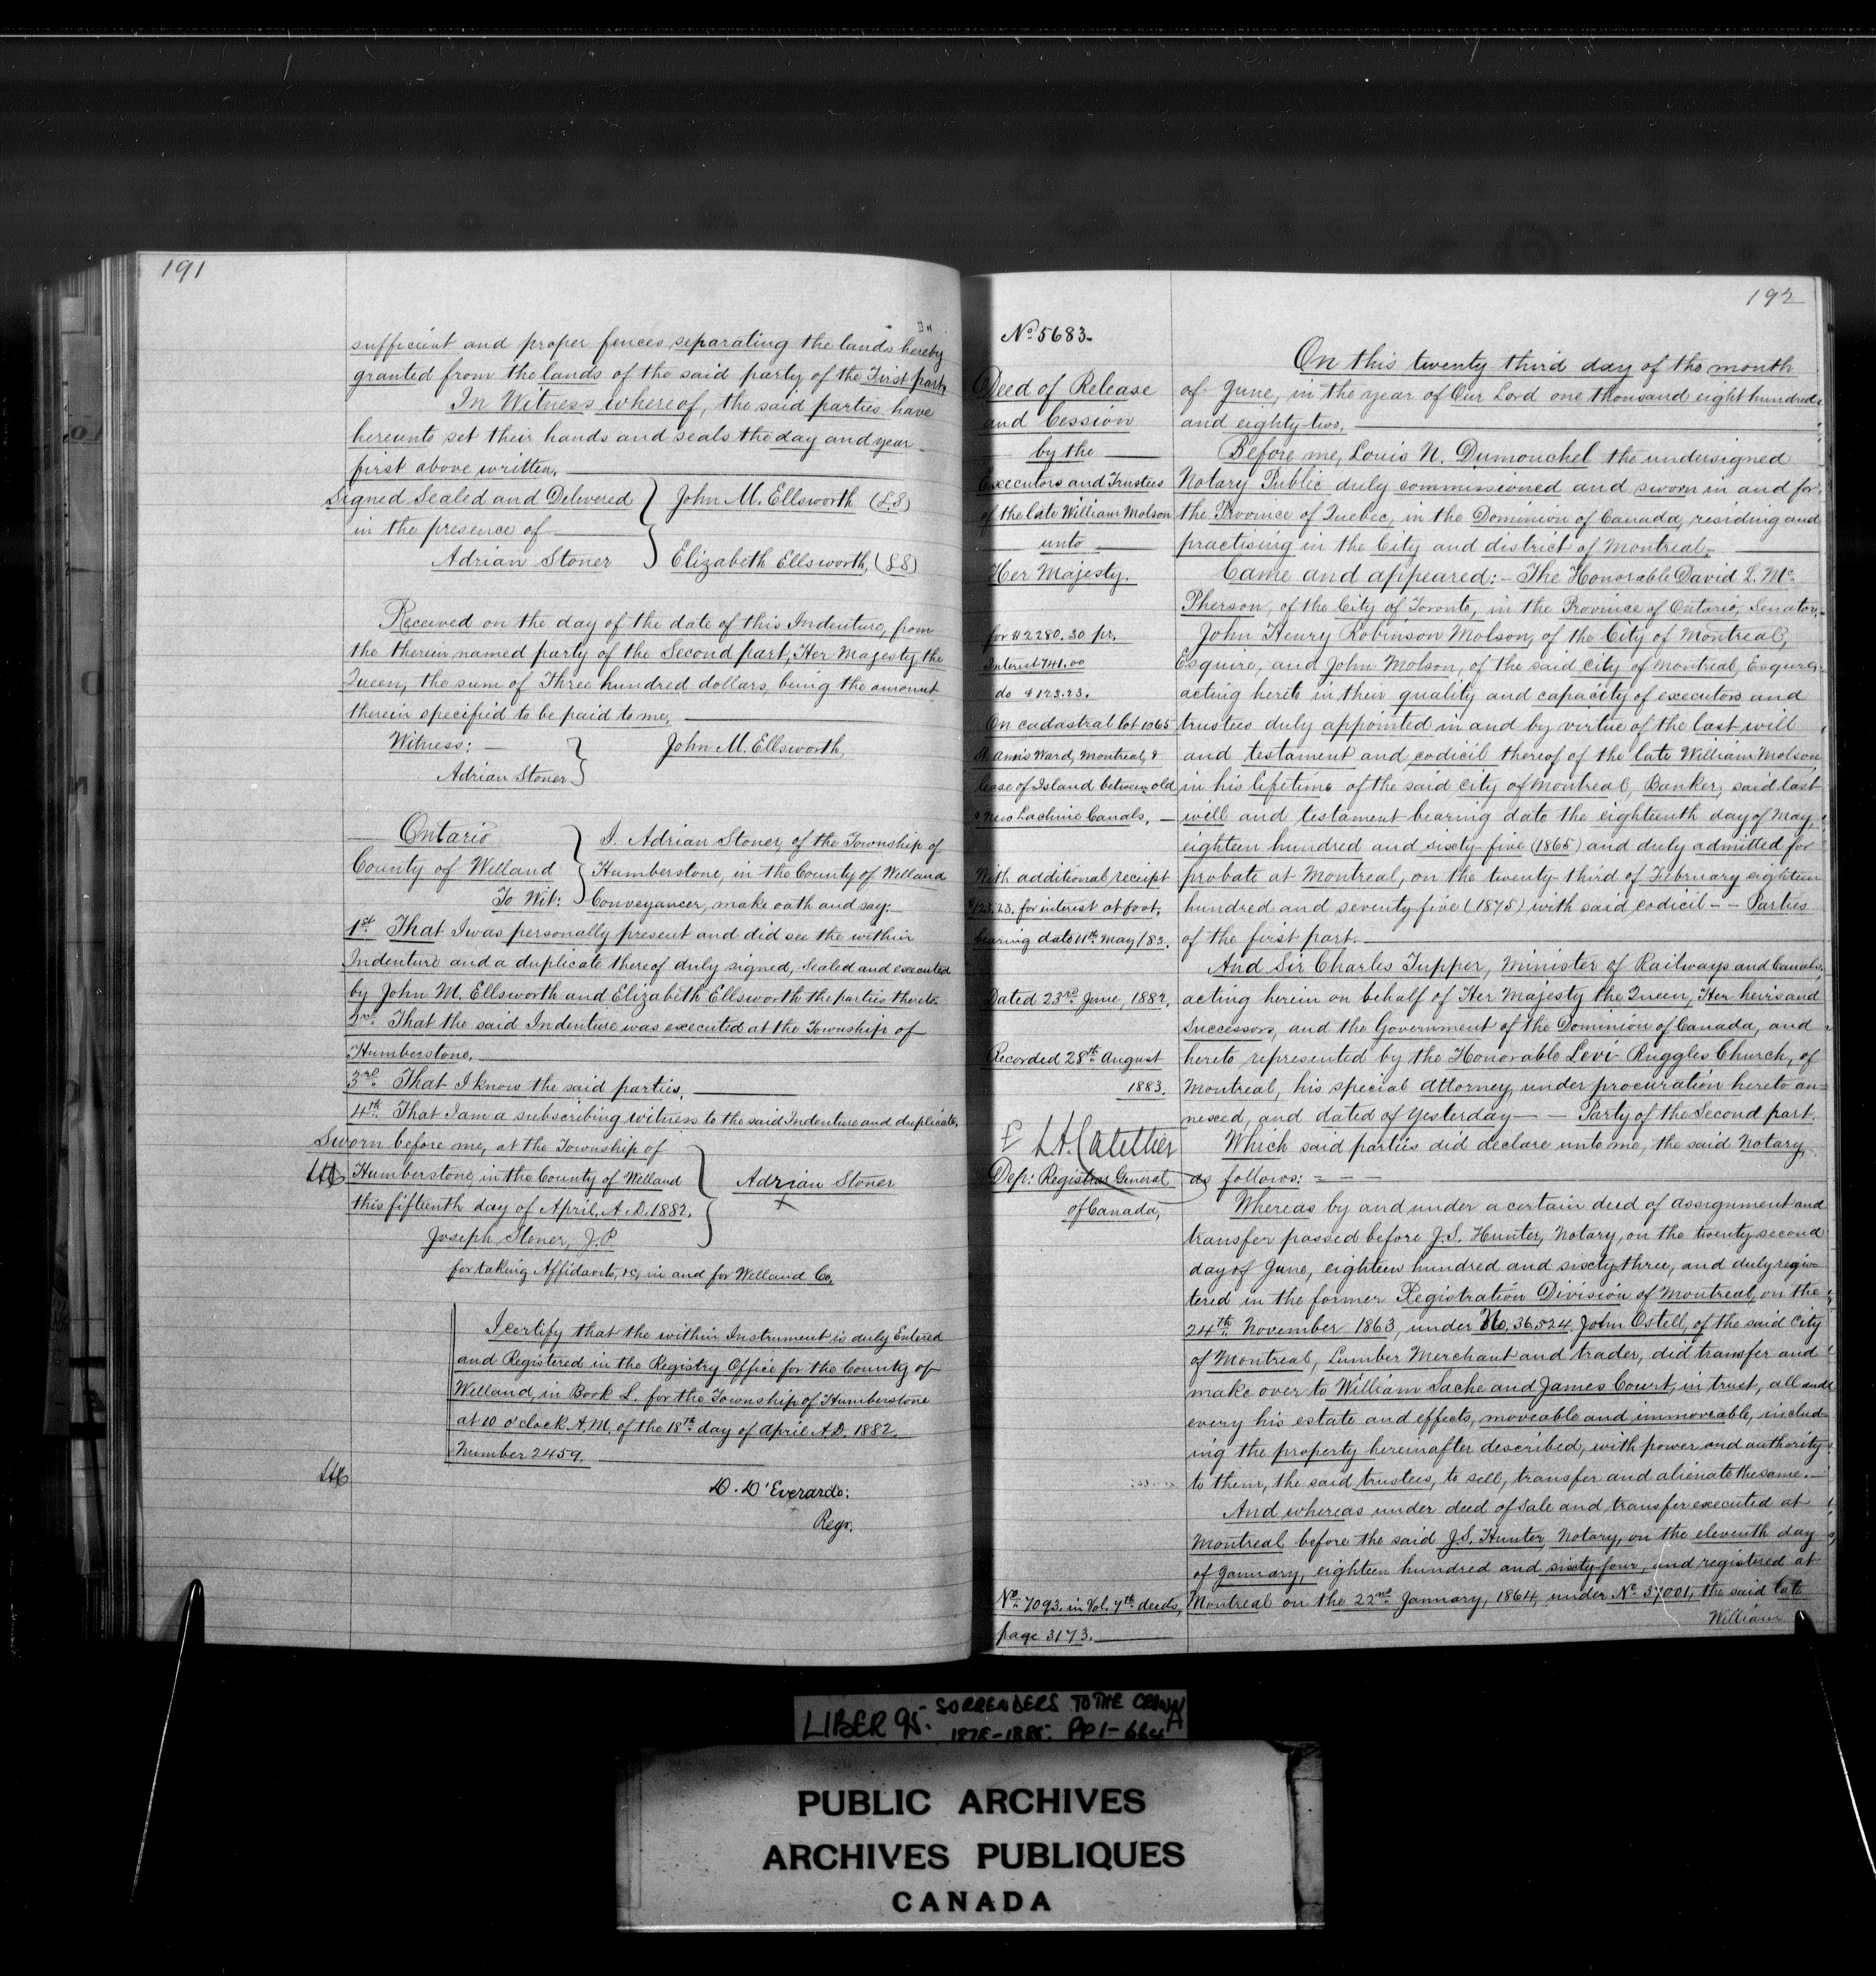 191
sufficient and proper fences separating the lands hereby
granted from the lands of the said party of the First part,
In Witness whereof, the said parties have
hereunto set their hands and seals the day and year
first above written.
Signed Sealed and Delivered
in the presence of
Adrian Stoner
John M. Ellsworth (L.S)
Elizabeth Ellsworth, (L.S)
Received on the day of the date of this Indenture, from
the therein named party of the Second part, Her Majesty the
Queen, the sum of Three hundred dollars, being the amount
therein specified to be paid to me.
Witness: -
Adrian Stoner
John M. Ellsworth,
Ontario
County of Welland
To Wit:
I. Adrian Stoner, of the Township of
Humberstone, in the County of Welland
Conveyancer, make oath and say:-
1st. That I was personally present and did see the within
Indenture and a duplicate thereof duly signed, sealed and executed
by John M. Ellsworth and Elizabeth Ellsworth the parties thereto.
2nd. That the said Indenture was executed at the Township of
Humberstone.
3rd. That I know the said parties.
4th. That I am a subscribing witness to the said Indenture and duplicate.
Sworn before me, at the Township of
Humberstone, in the County of Welland
this fifteenth day of April, A.D. 1882.
Joseph Stoner, J.P
for taking Affidavits, &c, in and for Welland Co,
Adrian Stoner
X
I certify that the within Instrument is duly Entered
and Registered in the Registry Office for the County of
Welland, in Book L. for the Township of Humberstone
at 10 o'clock A.M. of the 18th day of April A.D. 1882.
Number 2459.
D. D'Everardo:
Regr.
192
No 5683.
Deed of Release
and Cession
by the
Executors and Trustees
of the late William Molson
unto
Her Majesty.
for $2280.30 pr.
Interest 741.00
do $123.23.
On cadastral lot 1065
St. Ann's Ward, Montreal, &
lease of Island between old
& New Lachine Canals. -
With additional receipt
$123.23. for interest at foot,
bearing date 11th May/83.
Dated 23rd June, 1882.
Recorded 28th August
1883.
Dep: Registrar General
of Canada,
No 7093. in Vol. 7th deeds,
page 3173.
On this twenty third day of the month
of June, in the year of Our Lord one thousand eight hundred
and eighty-two,
Before me, Louis N. Dumouchel the undersigned
Notary Public duly commissioned and sworn in and for
the Province of Quebec, in the Dominion of Canada, residing and
practising in the City and district of Montreal.
Came and appeared:- The Honorable David L. Mc
Pherson, of the City of Toronto, in the Province of Ontario, Senator,
John Henry Robinson Molson, of the City of Montreal,
Esquire, and John Molson, of the said City of Montreal, Esquire,
acting hereto in their quality and capacity of executors and
trustees duly appointed in and by virtue of the last will
and testament and codicil thereof of the late William Molson
in his lifetime of the said City of Montreal, Banker, said last
will and testament bearing date the eighteenth day of May,
eighteen hundred and sixty-five (1865) and duly admitted for
probate at Montreal, on the twenty-third of February eighteen
hundred and seventy-five (1875) with said codicil - - Parties
of the first part.
And Sir Charles Tupper, Minister of Railways and Canals,
acting herein on behalf of Her Majesty the Queen, Her heirs and
Successors, and the Government of the Dominion of Canada, and
hereto represented by the Honorable Levi Ruggles Church, of
Montreal, his special attorney, under procuration hereto an=
nexed, and dated of yesterday - - Party of the Second part.
Which said parties did declare unto me, the said Notary,
as follows: - - -
Whereas by and under a certain deed of assignment and
transfer passed before J.S. Hunter, Notary, on the twenty second
day of June, eighteen hundred and sixty-three, and duly regis=
tered in the former Registration Division of Montreal, on the
24th November 1863, under No. 36.524. John Ostell, of the said City
of Montreal, Lumber Merchant and trader, did transfer and
make over to William Sache and James Court, in trust, all and
every his estate and effects, moveable and immoveable, includ=
ing the property hereinafter described, with power and authority
to them, the said trustees, to sell, transfer and alienate the same. -
And whereas under deed of sale and transfer executed at
Montreal before the said J.S. Hunter, Notary, on the eleventh day
of January, eighteen hundred and sixty-four, and registered at
Montreal on the 22nd January, 1864, under No. 37001, the said late
William
LIBER 95. SURRENDERS TO THE CROWN
PUBLIC ARCHIVES
ARCHIVES PUBLIQUES
CANADA